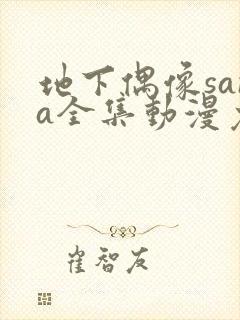 地下偶像sa
a全集動漫
崔智友